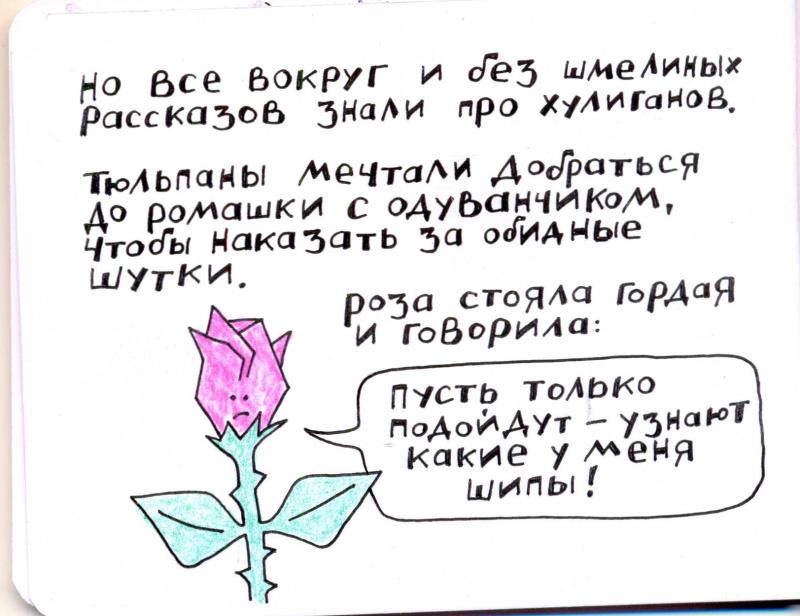 Но все вокруг и без шмелиных
рассказов знали про хулиганов.
Тюльпаны мечтали добраться
до ромашки с одуванчиком,
чтобы наказать за обидные
шутки.
Роза стояла гордая
и говорила:
Пусть только
подойдут – узнают
какие у меня
шипы!